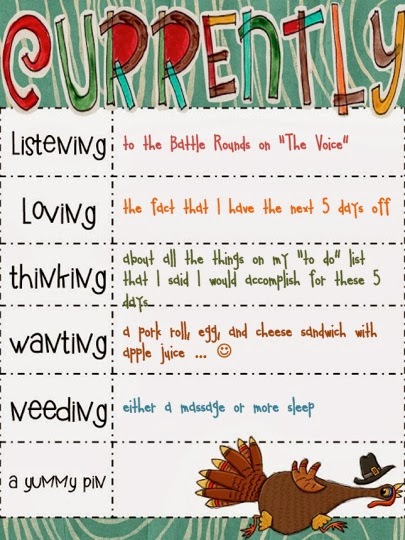 CURRENTLY
Listening
to the Battle Rounds on "The Voice"
Loving
the fact that I have the next 5 days off
thinking
about all the things on my "to do" list
that I said I would accomplish for these 5
days...
wanting
a pork roll, egg, and cheese sandwich with
apple juice ... ☺
needing
either a massage or more sleep
a yummy pin